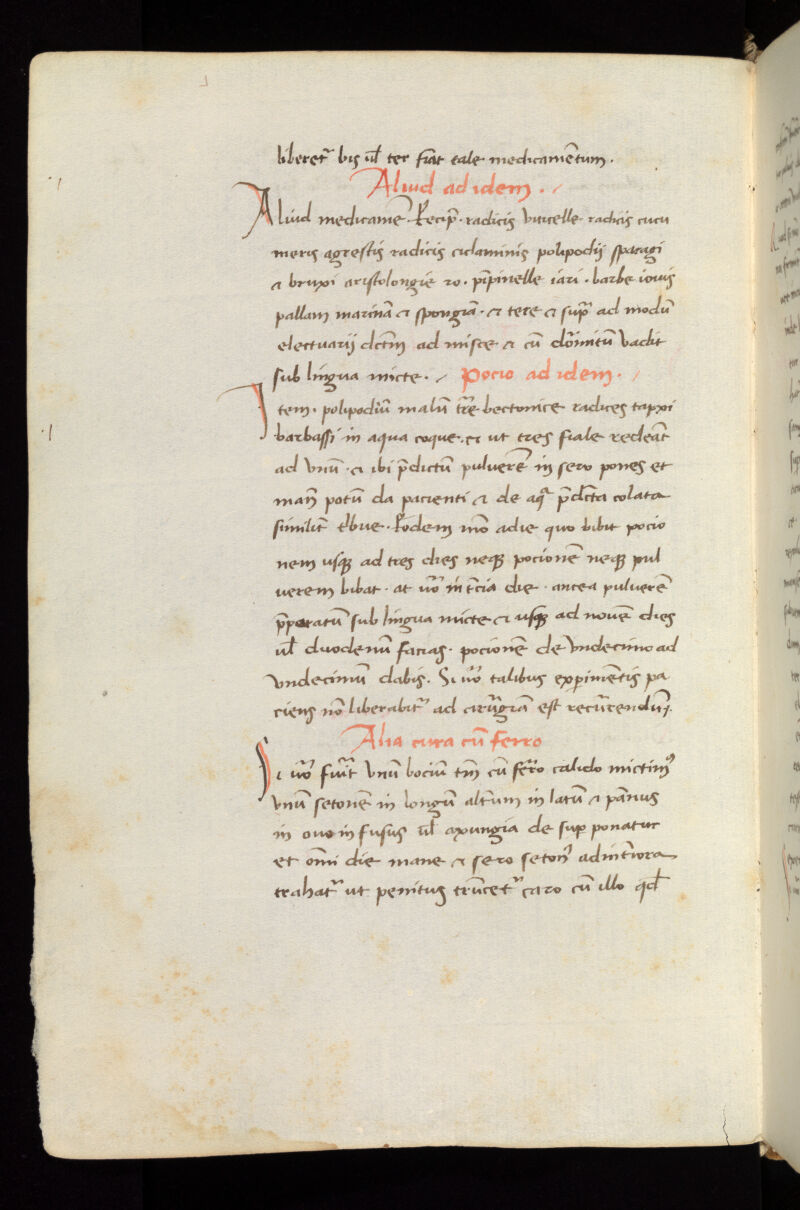 liberet᷑ bis ul̃ ter fiat tale medicamẽtum.
Aliud ad idem.
Aliud medicamẽ. Recip̃. radicis viticelle radicis cucu
meris agrestis radicis ciclaminis polipodij sparagi
a bruxi aristolongie ro. pĩpinelle iari. barbe iouis
pallam marinã et spongiã. et tere et sup̃ ad modũ
electuarij dc̃tm ad misce et cũ dormitũ vadit
sub lingua micte. Pocio ad idem.
Item. polipodiũ malũ tr̃e bectonice radices tapxi
barbassi in aqua coque. et ut tres fiale redeãt
ad vnũ. et ibi p̃dictũ puluerẽ in sero pones et
mañ potũ da pacienti et de aq̃ p̃dc̃ta colata
similit̃ t̃bue. Eodem mõ adie quo bibit pocio
nem usqꝫ ad tres dies neqꝫ pocionẽ neqꝫ pul
uerem bibat. at uõ in t̃cia die. antea puluerẽ
p̃paratũ sub lingua micte et usqꝫ ad nouẽ dies
ul̃ duodenũ facias. pocionẽ de vndecimo ad
vndecimũ dabis. Si uõ talibus exp̃imẽtis pa
ciens nõ liberabit᷑ ad cirũgiã est recũrendũ.
Alia cura cũ ferro
Si uõ fuĩt vnũ bociũ tm̃ cũ fer̃o calido mictimꝰ
vnũ setonẽ in longũ alt̃um in latũ et pãnus
in ouo infusus ul̃ axungia de sup ponatur
et om̃i die mane et sero setoñ ad int̃iora
trahat᷑ ut penitus trũcet᷑ caro cũ illo qd̃